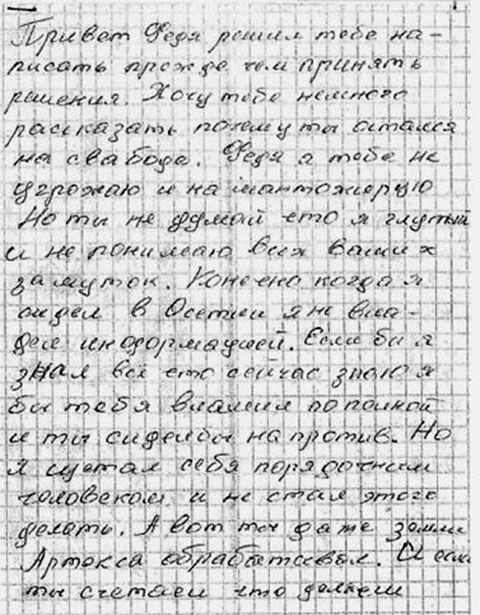 Привет Федя решил тебе на-
писать прежде чем принять
решения. Хочу тебе немного
рассказать почему ты остался
на свабоде. Федя я тебе не
угрожаю и на шантожирую
Но ты не думай что я глупый
и не понимаю всех ваших
замуток. Конечно когда я
сидел в Осетии я не вла-
дел информацией. Если бы я
знал всё что сейчас знаю я
бы тебя вламил по полной
и ты сиделбы на против. Но
я щетал себя порядочним
человеком и не стал этого
делать. А вот ты даже земли
Артекса обрабатывал. И если
ты счетаеш что должен